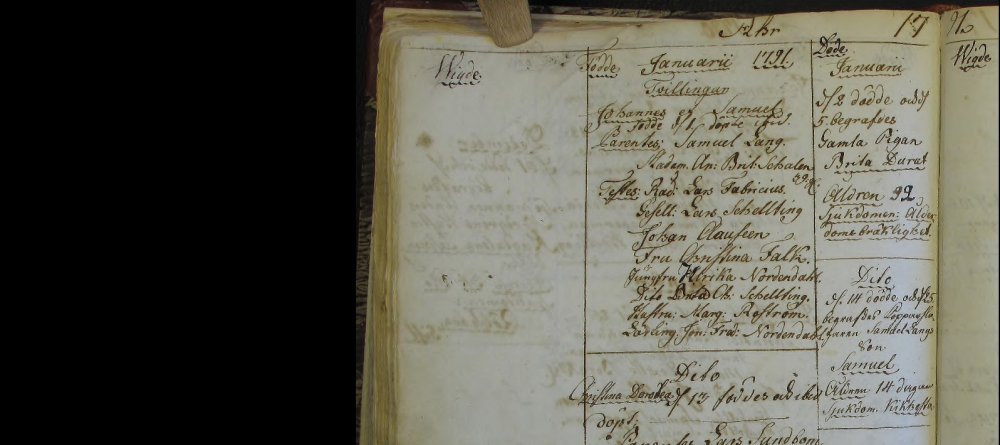 Åhr 17
Wigde
Födde Januarii 1791
Tvillingar
Johannes et Samuel
Parentes: Samuel Lang.
Madam An: Brit: Schalen
Testes: Råd: Lars Fabricius.
Gesell: Lars Schellting
Johan Claufeen
Fru Christina Falk.
Jungfru Ulrika Nordendahl.
Dito Ch: Schellting.
Hustru: Marg: Roström.
Lärling. Jon: Fred: Nordendahl
Dito
Christina Dorothea d. 13 föddes och
döpt
Parentes Lars Sundbom
Döde
Januarii
d. 2 dödde och d.
5. begrafdes
Gamla Pigan
Brita Durat
Åldren 92
Sjukdomen: Ålder-
doms bräklighet.
Dito
d. 14 dödde och d. 25
begrafdes
Samuel Langs
Son
Samuel
Åldren 14 dagar
Sjukdom. Kikhosta
91.
Wigde